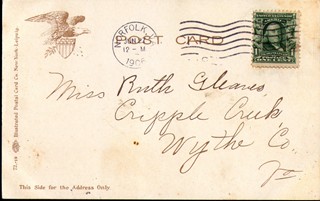 NORFOLK
12-M
POST CARD
Miss Ruth Gleaves
Cripple Creek
Wythe Co.
Va.
Illustrated Postal Card Co., New York-Leipzig.
This Side for the Address Only.